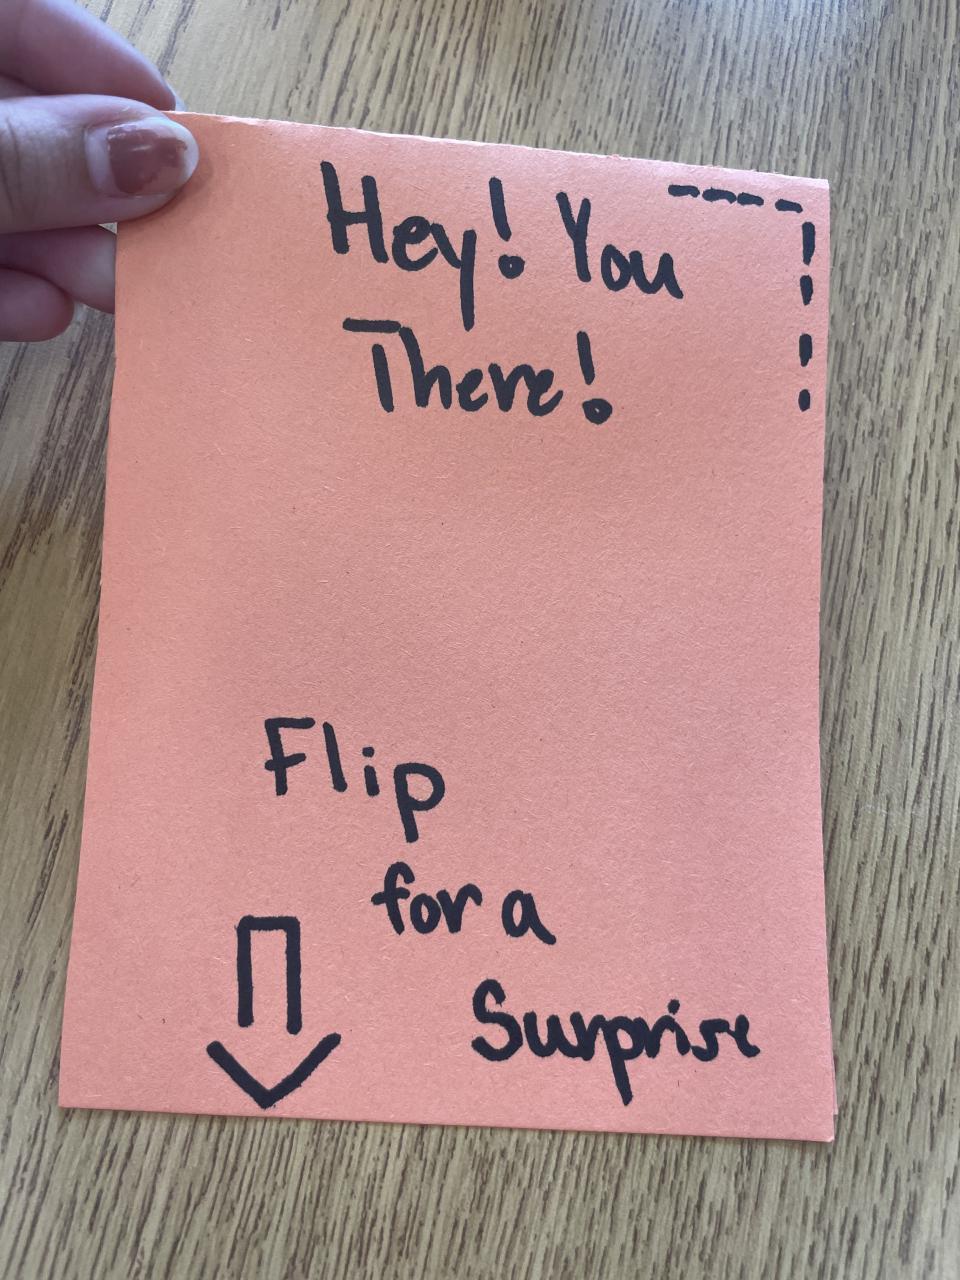 Hey! You
There!
Flip
for a
Surprise